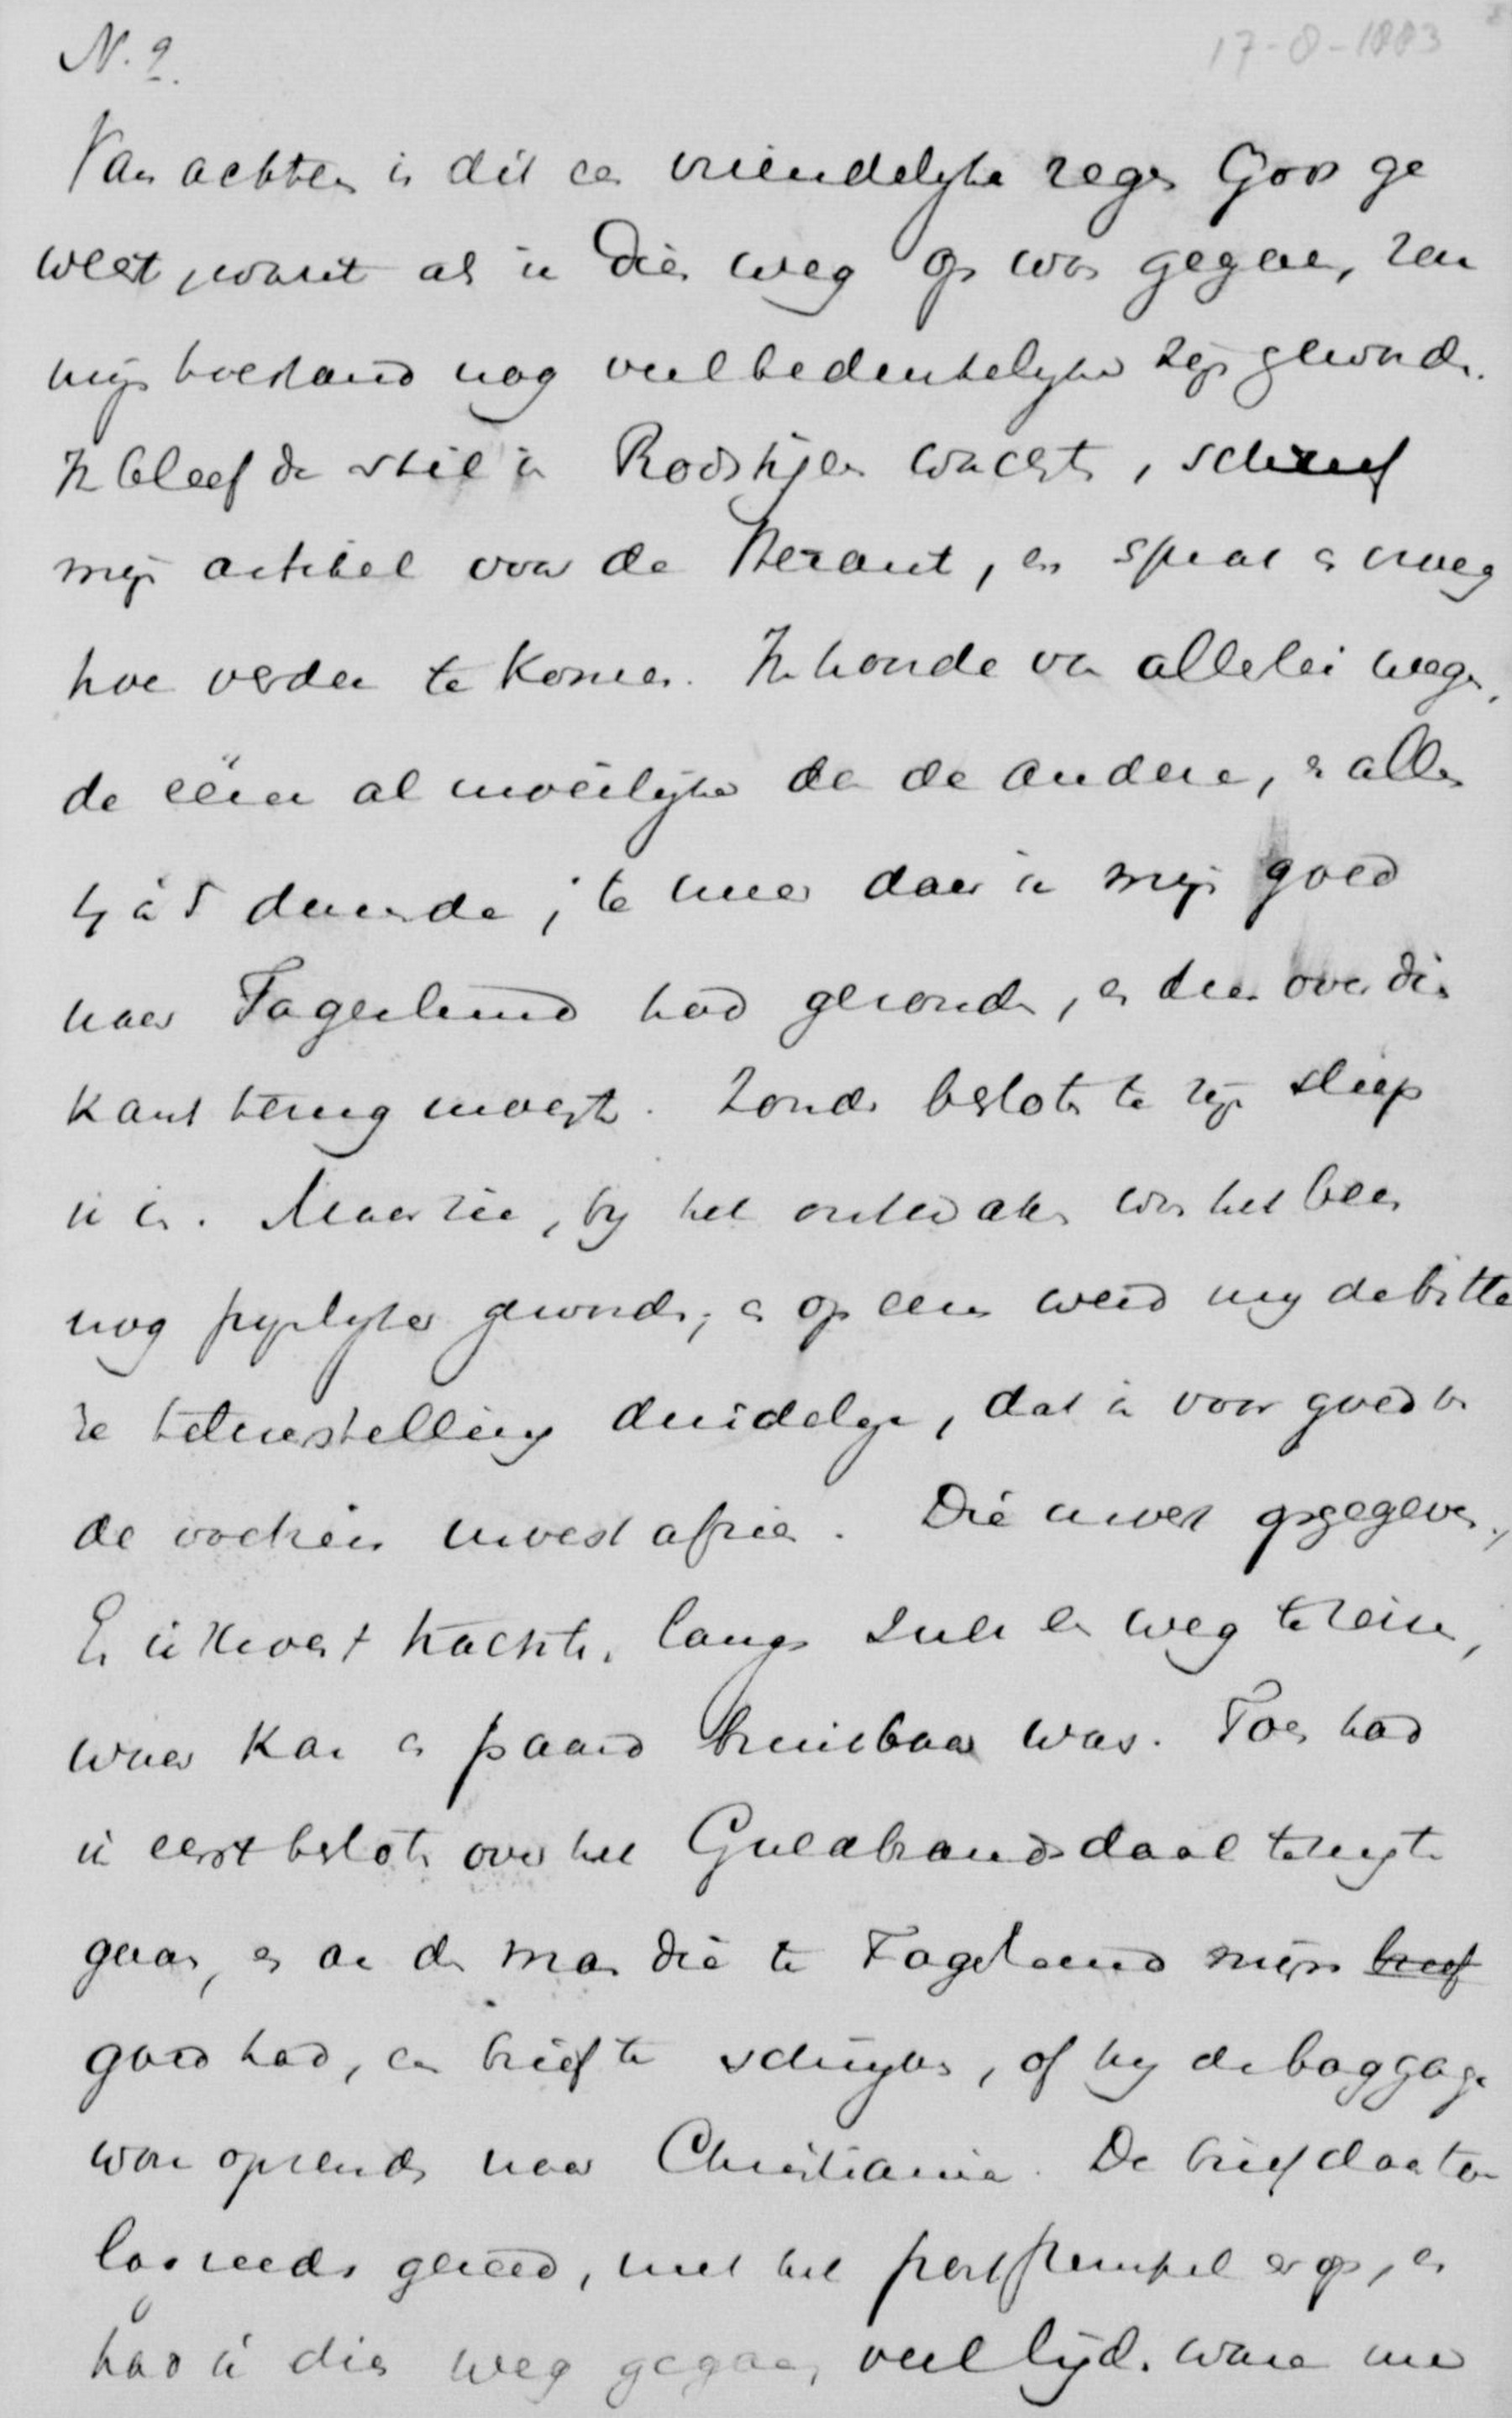 N. 2.
17-8-1883
Van achteren is dit een vriendelyke zegen Gods ge
weest, want als ik dien weg op was gegaan, zou
mijn toestand nog veel bedenkelyker zijn geworden.
Ik bleef dus stil in Rodshjem wachten, schreef
mijn artikel voor de Heraut, en sprak en vroeg
hoe verder te komen. Ik hoorde van allerlei wegen,
de eëen al moeilijker dan de andere, en alles
4 à 5 daagsche; te meer daar ik mijn goed
naar Fagerlund had gezonden, en dus over dien
kant terug moest. Zonder besloten te zijn sliep
ik in. Maar zie, by het ontwaken was het been
nog pynlyker geworden; en op eens werd my de bitte
re teleurstelling duidelyk, dat ik voor goed van
de voetreis moest afzien. Die moest opgegeven,
En ik moest trachten, langs zulk een weg te reizen,
waar Kar en paard bruikbaar was. Toen had
ik eerst besloten over het Guldbrandsdaal terug te
gaan, en aan den man die te Fagerlund mijn brief
goed had, een brief te schrijven, of hy de baggage
wou opzenden naar Christiania. De brief daartoe
lag reeds gereed, met het poststempel er op, en
had ik dien weg gegaan, veel lijden ware me